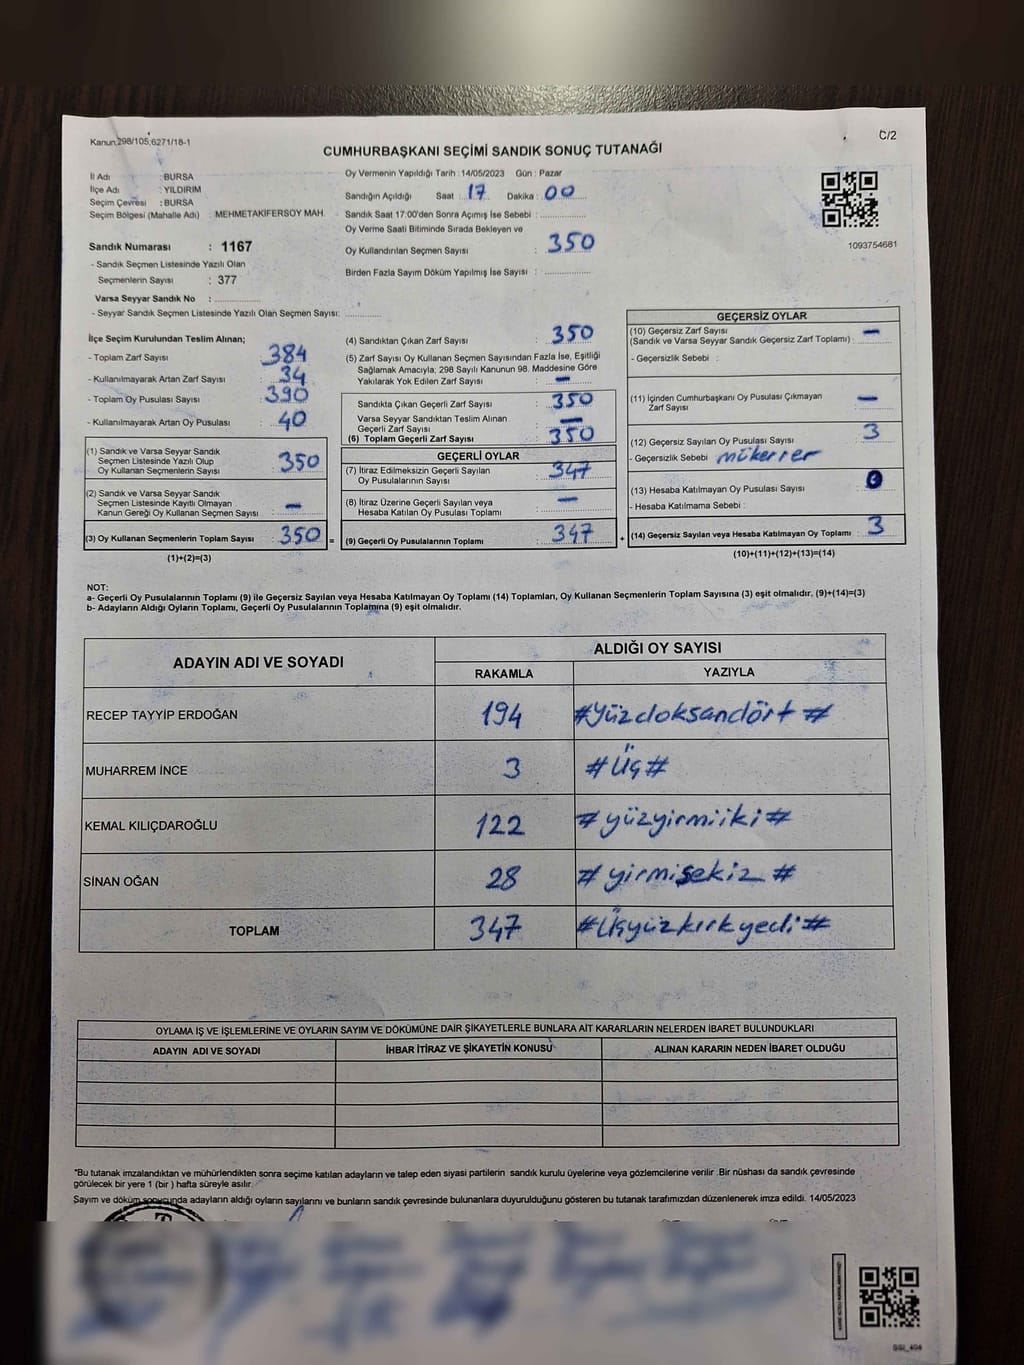 Kanun,298/105,6271/18-1
C/2
CUMHURBAŞKANI SEÇİMİ SANDIK SONUÇ TUTANAĞI
İl Adı : BURSA
İlçe Adı : YILDIRIM
Seçim Çevresi : BURSA
Seçim Bölgesi (Mahalle Adı) : MEHMETAKİFERSOY MAH.
Sandık Numarası : 1167
- Sandık Seçmen Listesinde Yazılı Olan
Seçmenlerin Sayısı : 377
Varsa Seyyar Sandık No :
- Seyyar Sandık Seçmen Listesinde Yazılı Olan Seçmen Sayısı:
Oy Vermenin Yapıldığı Tarih : 14/05/2023 Gün : Pazar
Sandığın Açıldığı Saat : 17 Dakika : 00
Sandık Saat 17:00'den Sonra Açımış İse Sebebi :
Oy Verme Saati Bitiminde Sırada Bekleyen ve
Oy Kullandırılan Seçmen Sayısı : 350
Birden Fazla Sayım Döküm Yapılmış İse Sayısı :
1093754681
İlçe Seçim Kurulundan Teslim Alınan;
- Toplam Zarf Sayısı : 384
- Kullanılmayarak Artan Zarf Sayısı : 34
- Toplam Oy Pusulası Sayısı : 390
- Kullanılmayarak Artan Oy Pusulası : 40
(1) Sandık ve Varsa Seyyar Sandık
Seçmen Listesinde Yazılı Olup
Oy Kullanan Seçmenlerin Sayısı : 350
(2) Sandık ve Varsa Seyyar Sandık
Seçmen Listesinde Kayıtlı Olmayan
Kanun Gereği Oy Kullanan Seçmen Sayısı : —
(3) Oy Kullanan Seçmenlerin Toplam Sayısı : 350 =
(1)+(2)=(3)
(4) Sandıktan Çıkan Zarf Sayısı : 350
(5) Zarf Sayısı Oy Kullanan Seçmen Sayısından Fazla İse, Eşitliği
Sağlamak Amacıyla, 298 Sayılı Kanunun 98. Maddesine Göre
Yakılarak Yok Edilen Zarf Sayısı : —
Sandıkta Çıkan Geçerli Zarf Sayısı : 350
Varsa Seyyar Sandıktan Teslim Alınan
Geçerli Zarf Sayısı : —
(6) Toplam Geçerli Zarf Sayısı : 350
GEÇERLİ OYLAR
(7) İtiraz Edilmeksizin Geçerli Sayılan
Oy Pusulalarının Sayısı : 347
(8) İtiraz Üzerine Geçerli Sayılan veya
Hesaba Katılan Oy Pusulası Toplamı : —
(9) Geçerli Oy Pusulalarının Toplamı : 347 +
GEÇERSİZ OYLAR
(10) Geçersiz Zarf Sayısı
(Sandık ve Varsa Seyyar Sandık Geçersiz Zarf Toplamı) : —
- Geçersizlik Sebebi :
(11) İçinden Cumhurbaşkanı Oy Pusulası Çıkmayan
Zarf Sayısı : —
(12) Geçersiz Sayılan Oy Pusulası Sayısı : 3
- Geçersizlik Sebebi mükerrer
(13) Hesaba Katılmayan Oy Pusulası Sayısı : 0
- Hesaba Katılmama Sebebi :
(14) Geçersiz Sayılan veya Hesaba Katılmayan Oy Toplamı : 3
(10)+(11)+(12)+(13)=(14)
NOT:
a- Geçerli Oy Pusulalarının Toplamı (9) ile Geçersiz Sayılan veya Hesaba Katılmayan Oy Toplamı (14) Toplamları, Oy Kullanan Seçmenlerin Toplam Sayısına (3) eşit olmalıdır, (9)+(14)=(3)
b- Adayların Aldığı Oyların Toplamı, Geçerli Oy Pusulalarının Toplamına (9) eşit olmalıdır.
ADAYIN ADI VE SOYADI
ALDIĞI OY SAYISI
RAKAMLA YAZIYLA
RECEP TAYYİP ERDOĞAN 194 #Yüzdoksandört#
MUHARREM İNCE 3 #Üç#
KEMAL KILIÇDAROĞLU 122 #yüzyirmiiki#
SİNAN OĞAN 28 #yirmisekiz#
TOPLAM 347 #Üçyüzkırkyedi#
OYLAMA İŞ VE İŞLEMLERİNE VE OYLARIN SAYIM VE DÖKÜMÜNE DAİR ŞİKAYETLERLE BUNLARA AİT KARARLARIN NELERDEN İBARET BULUNDUKLARI
ADAYIN ADI VE SOYADI İHBAR İTİRAZ VE ŞİKAYETİN KONUSU ALINAN KARARIN NEDEN İBARET OLDUĞU
*Bu tutanak imzalandıktan ve mühürlendikten sonra seçime katılan adayların ve talep eden siyasi partilerin sandık kurulu üyelerine veya gözlemcilerine verilir .Bir nüshası da sandık çevresinde
görülecek bir yere 1 (bir ) hafta süreyle asılır.
Sayım ve döküm sonucunda adayların aldığı oyların sayılarını ve bunların sandık çevresinde bulunanlara duyurulduğunu gösteren bu tutanak tarafımızdan düzenlenerek imza edildi. 14/05/2023